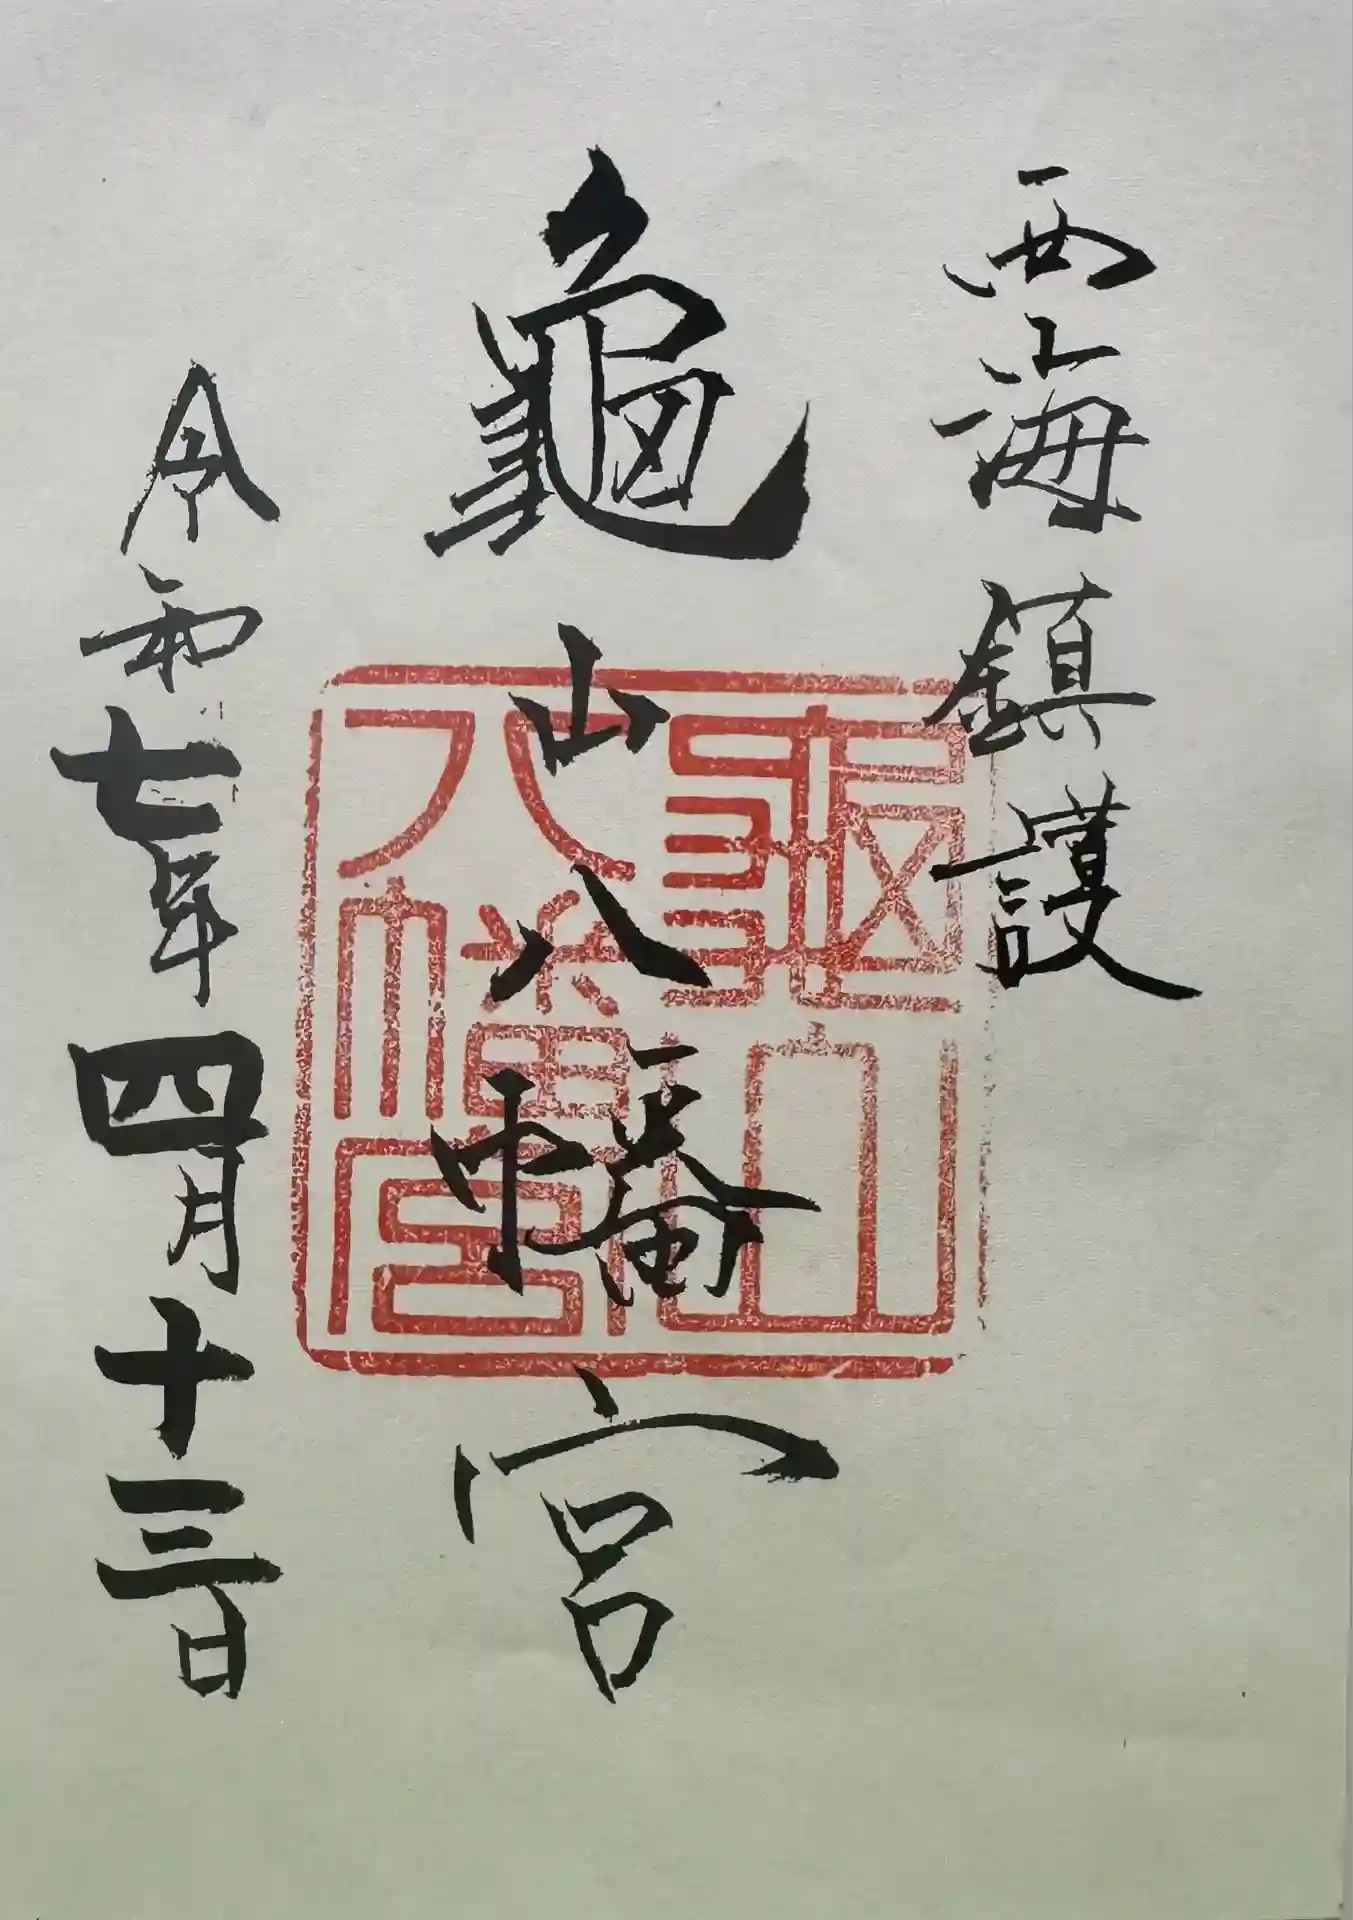 西海鎮護
龜山八幡宮
龜山
八幡宮
令和七年四月十三日